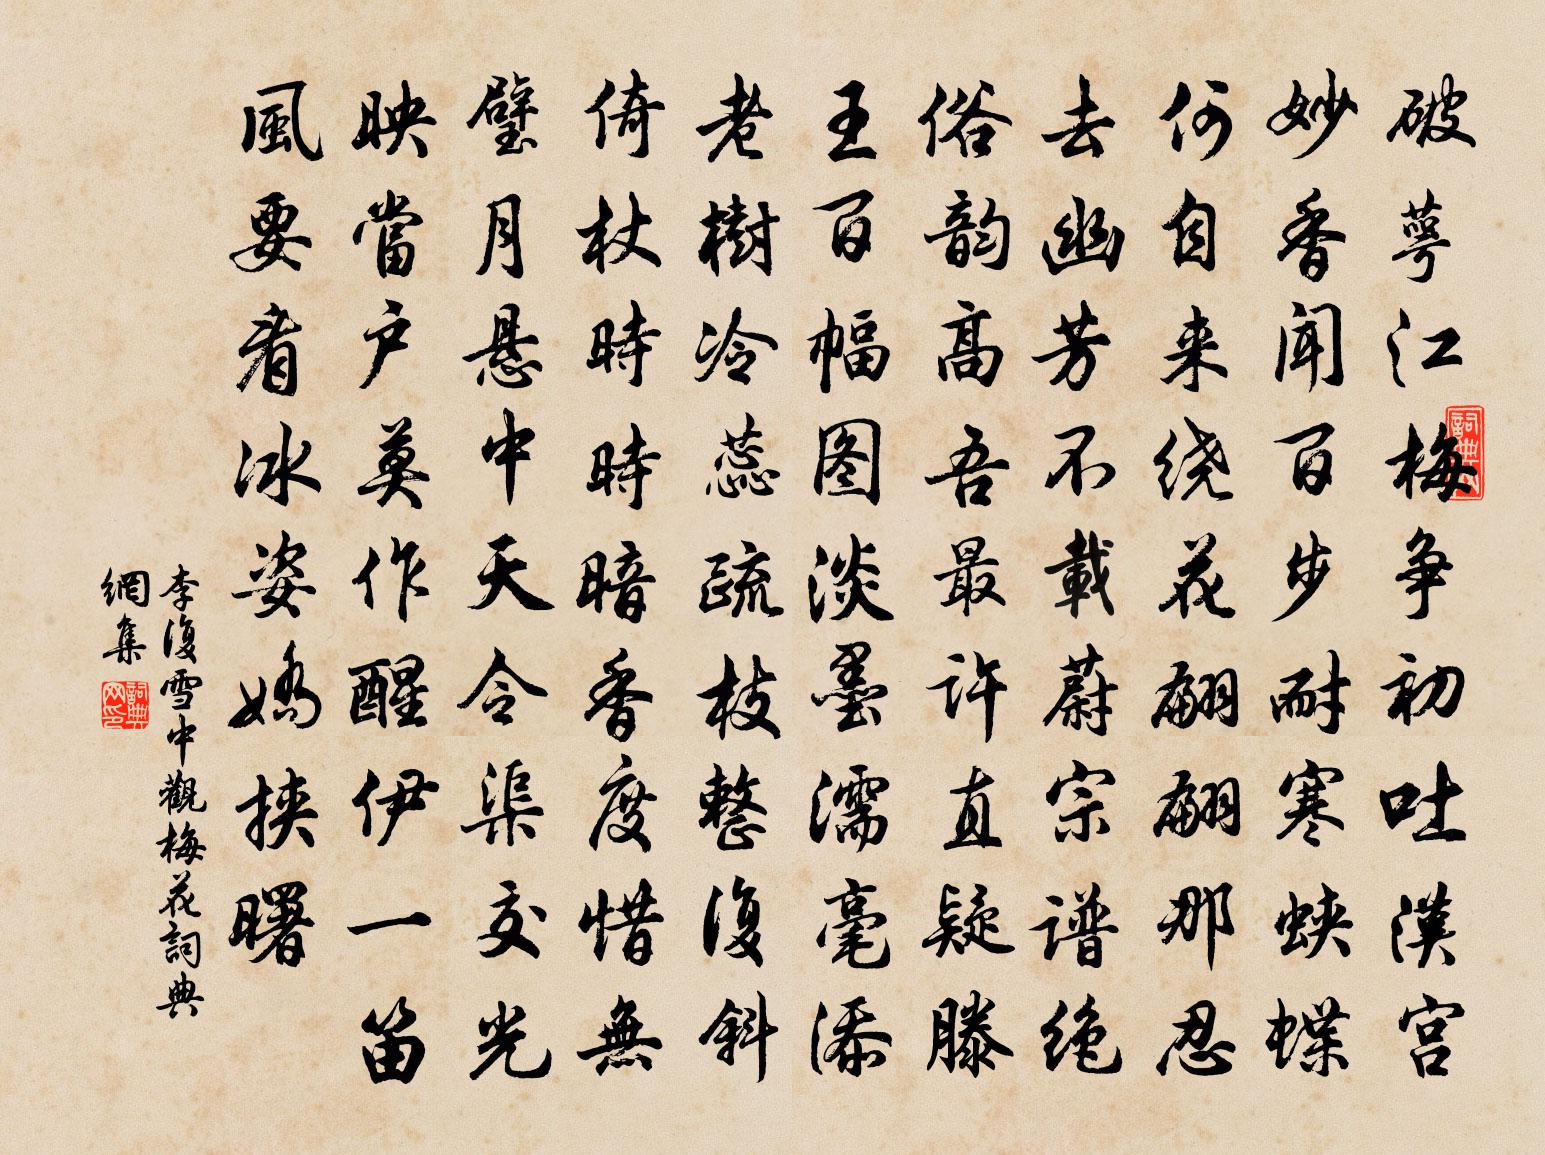 破萼江梅争初吐漢宫
妙香闻百步耐寒蛱蝶
何自来绕花翩翩那忍
去幽芳不載蔚宗谱绝
俗韵高吾最许直疑滕
王百幅图淡墨濡毫添
老樹冷蕊疏枝整復斜
倚杖時時暗香度惜無
璧月悬中天令渠交光
映當户莫作醒伊一笛
風要看冰姿嬌挾曙
李復雪中觀梅花詞典
網集
詞典